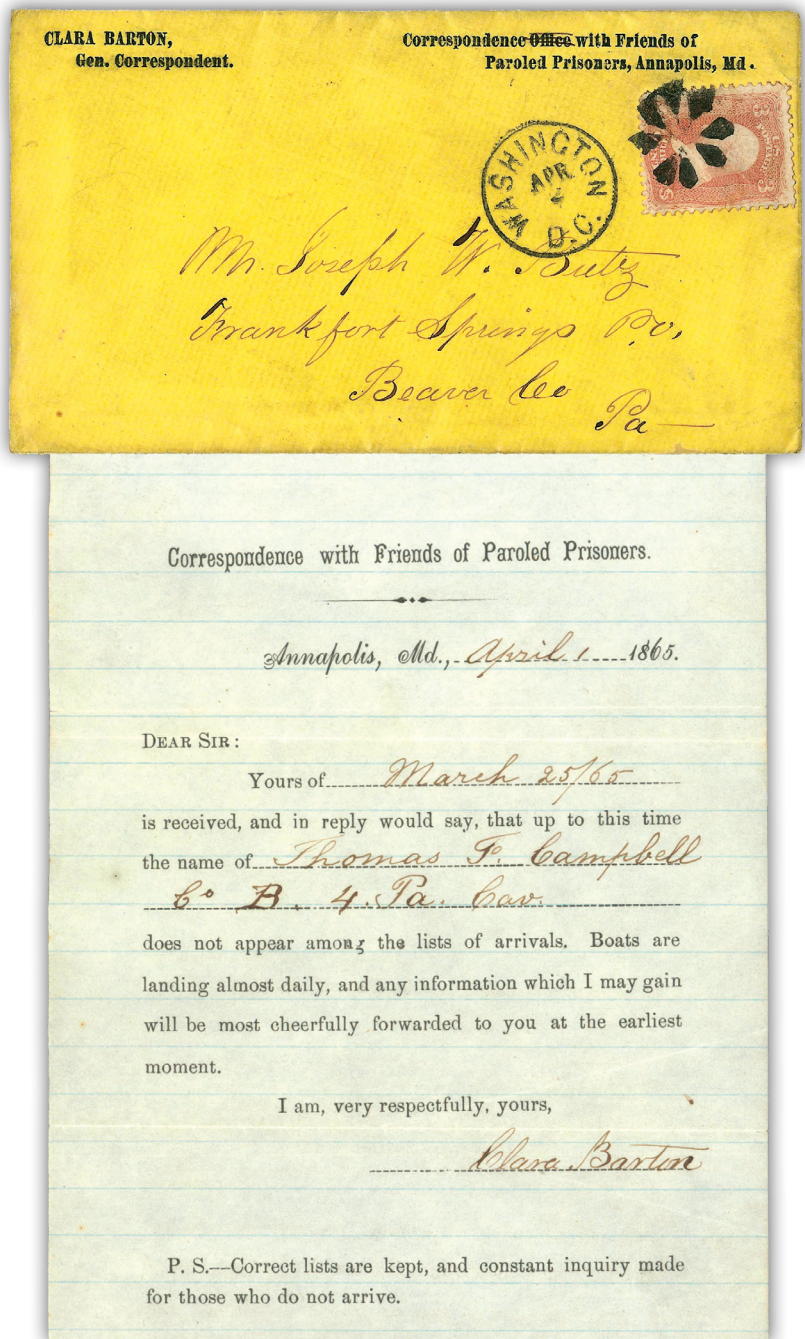 CLARA BARTON,
Gen. Correspondent.
Correspondence Office with Friends of
Paroled Prisoners, Annapolis, Md.
WASHINGTON
APR
D.C.
3
3
Mr. Joseph W. Butz
Frankfort Springs Po,
Beaver Co
Pa
Correspondence with Friends of Paroled Prisoners.
Annapolis, Md., April 1 1865.
DEAR SIR:
Yours of March 25/65
is received, and in reply would say, that up to this time
the name of Thomas F. Campbell
Co B. 4. Pa. Cav.
does not appear among the lists of arrivals. Boats are
landing almost daily, and any information which I may gain
will be most cheerfully forwarded to you at the earliest
moment.
I am, very respectfully, yours,
Clara Barton
P. S.—Correct lists are kept, and constant inquiry made
for those who do not arrive.